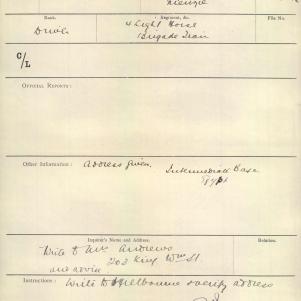 Kenzie
Rank.
Regiment, &c.
File No.
Driver
4 Light Horse
Brigade Train
C/L
OFFICIAL REPORTS:
Other Information: Address given. Intermediate Base
Egypt
Inquirer's Name and Address.
Relation.
Write to Mrs Andrews
203 King Wm St.
and advise
Instructions: Write to Melbourne & verify address